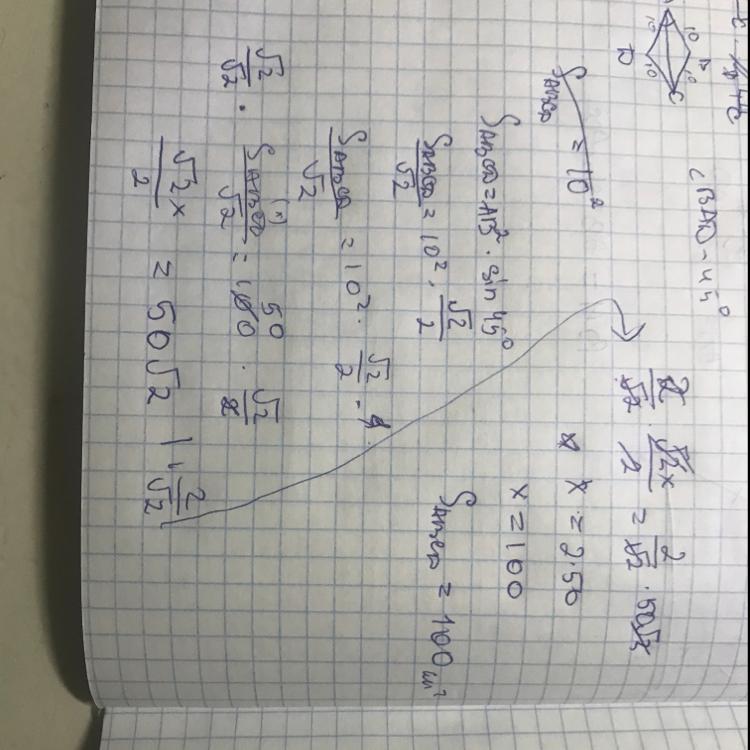 A
10 10
B
10 10
D C
∠BAD = 45°
S_ABCD = 10²
S_ABCD = AB² · sin 45°
S_ABCD/√2 = 10² · √2/2
S_ABCD/√2 = 10² · √2/2
√2/√2 · S_ABCD/√2 (x) = 100 50 · √2/2
√2x/2 = 50√2 | · 2/√2
2/√2 · √2x/2 = 2/√2 · 50√2
x = 2·50
x = 100
S_ABCD = 100